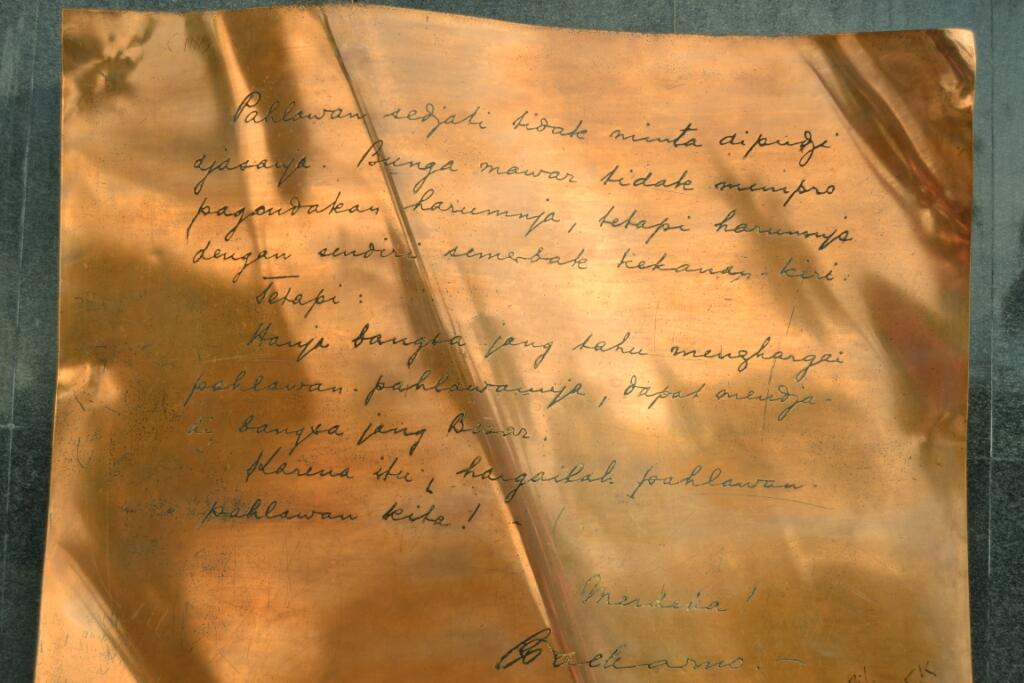 Pahlawan sedjati tidak minta dipudji
djasanja. Bunga mawar tidak mempro
pagandakan harumnja, tetapi harumnja
dengan sendiri semerbak kekanan-kiri.
Tetapi:
Hanja bangsa jang tahu menghargai
pahlawan-pahlawannja, dapat mendja-
di bangsa jang Besar.
Karena itu, hargailah pahlawan-
pahlawan kita! -
Merdeka!
Soekarno.-